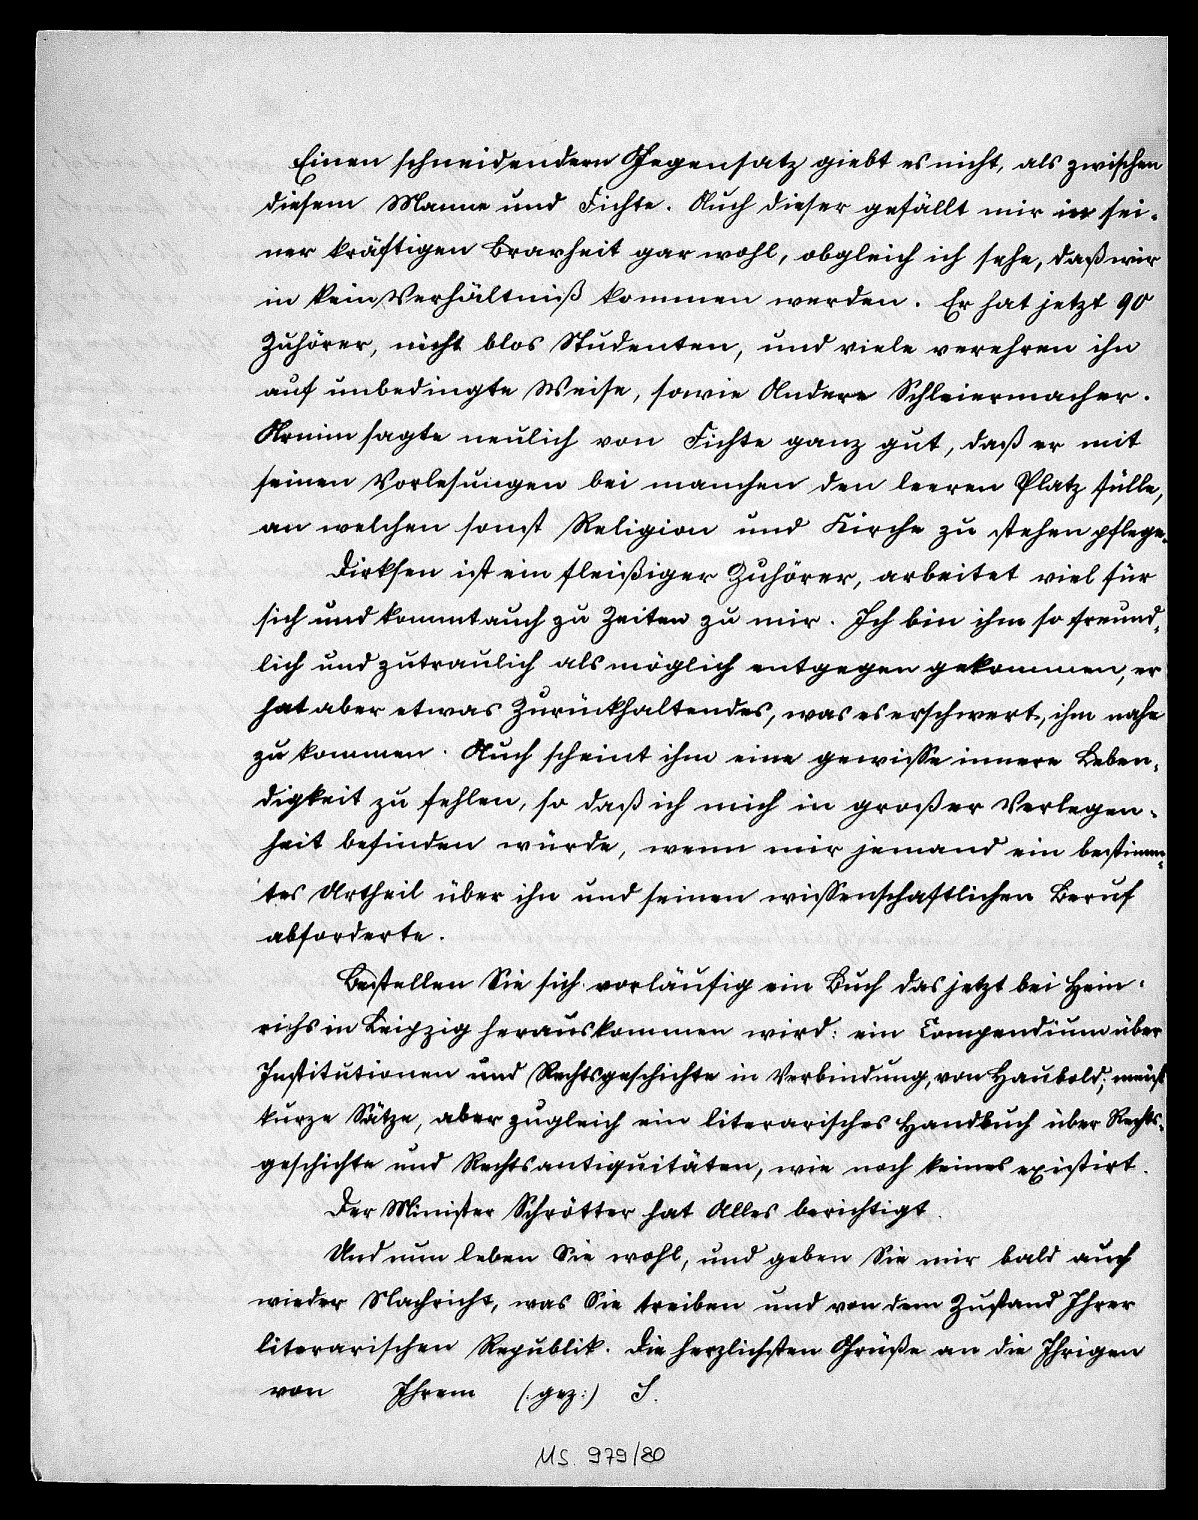 Einen schneidendern Gegensatz giebt es nicht, als zwischen
diesem Manne und Fichte. Auch dieser gefällt mir in sei-
ner kräftigen Bravheit gar wohl, obgleich ich sehe, daß wir
in kein Verhältniß kommen werden. Er hat jetzt 90
Zuhörer, nicht blos Studenten, und viele verehren ihn
auf unbedingte Weise, sowie Andere Schleiermacher.
Arnim sagte neulich von Fichte ganz gut, daß er mit
seinen Vorlesungen bei manchen den leeren Platz fülle,
an welchen sonst Religion und Kirche zu stehen pflege.
Dirksen ist ein fleißiger Zuhörer, arbeitet viel für
sich und kommt auch zu Zeiten zu mir. Ich bin ihm so freund-
lich und zutraulich als möglich entgegen gekommen, er
hat aber etwas Zurückhaltendes, was es erschwert, ihm nahe
zu kommen. Auch scheint ihm eine gewisse innere Leben-
digkeit zu fehlen, so daß ich mich in großer Verlegen-
heit befinden würde, wenn mir jemand ein bestimm-
tes Urtheil über ihn und seinen wissenschaftlichen Beruf
abforderte.
Bestellen Sie sich vorläufig ein Buch das jetzt bei Hein-
richs in Leipzig herauskommen wird: ein Compendium über
Institutionen und Rechtsgeschichte in Verbindung, von Haubold; meist
kurze Sätze, aber zugleich ein literarisches Handbuch über Rechts-
geschichte und Rechtsantiquitäten, wie noch keines existirt.
Der Minister Schrötter hat Alles berichtigt.
Und nun leben Sie wohl, und geben Sie mir bald auch
wieder Nachricht, was Sie treiben und von dem Zustand Ihrer
literarischen Republik. Die herzlichsten Grüße an die Ihrigen
von Ihrem (:gez:) S.
MS. 979/80